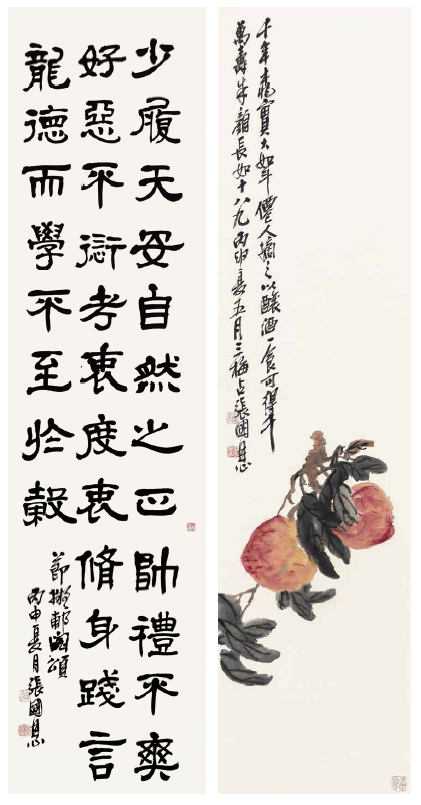 千年桃實大如斗僊人摘之以釀酒一食可得千
萬壽朱顏長如十八九丙申夏五月三梅占張國恩
少履天姿自然之正帥禮不爽
好惡不愆考衷度衷脩身踐言
龍德而學不至於穀
節撫郙閣頌
丙申夏月張國恩